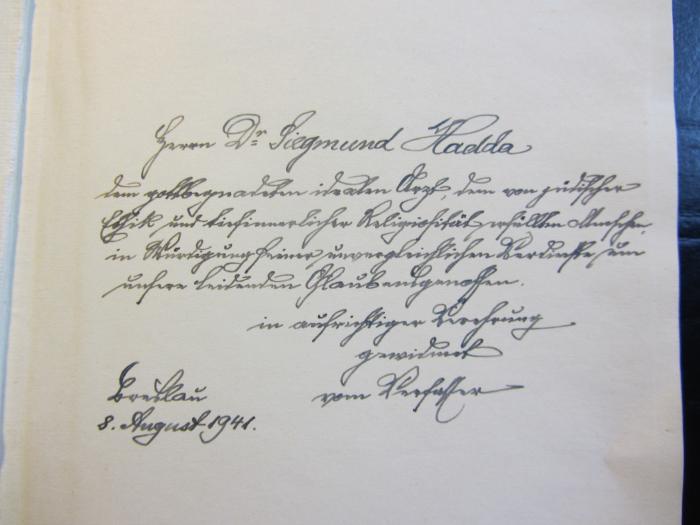 Herrn Dr. Siegmund Hadda
dem gottbegnadeten idealen Arzt, dem von jüdischer
Ethik und tiefinnerlicher Religiosität erfüllten Menschen,
in Würdigung seiner unvergleichlichen Verdienste um
unsere leidenden Glaubensgenossen.
in aufrichtiger Verehrung
gewidmet
vom Verfasser
Breslau
8. August 1941.